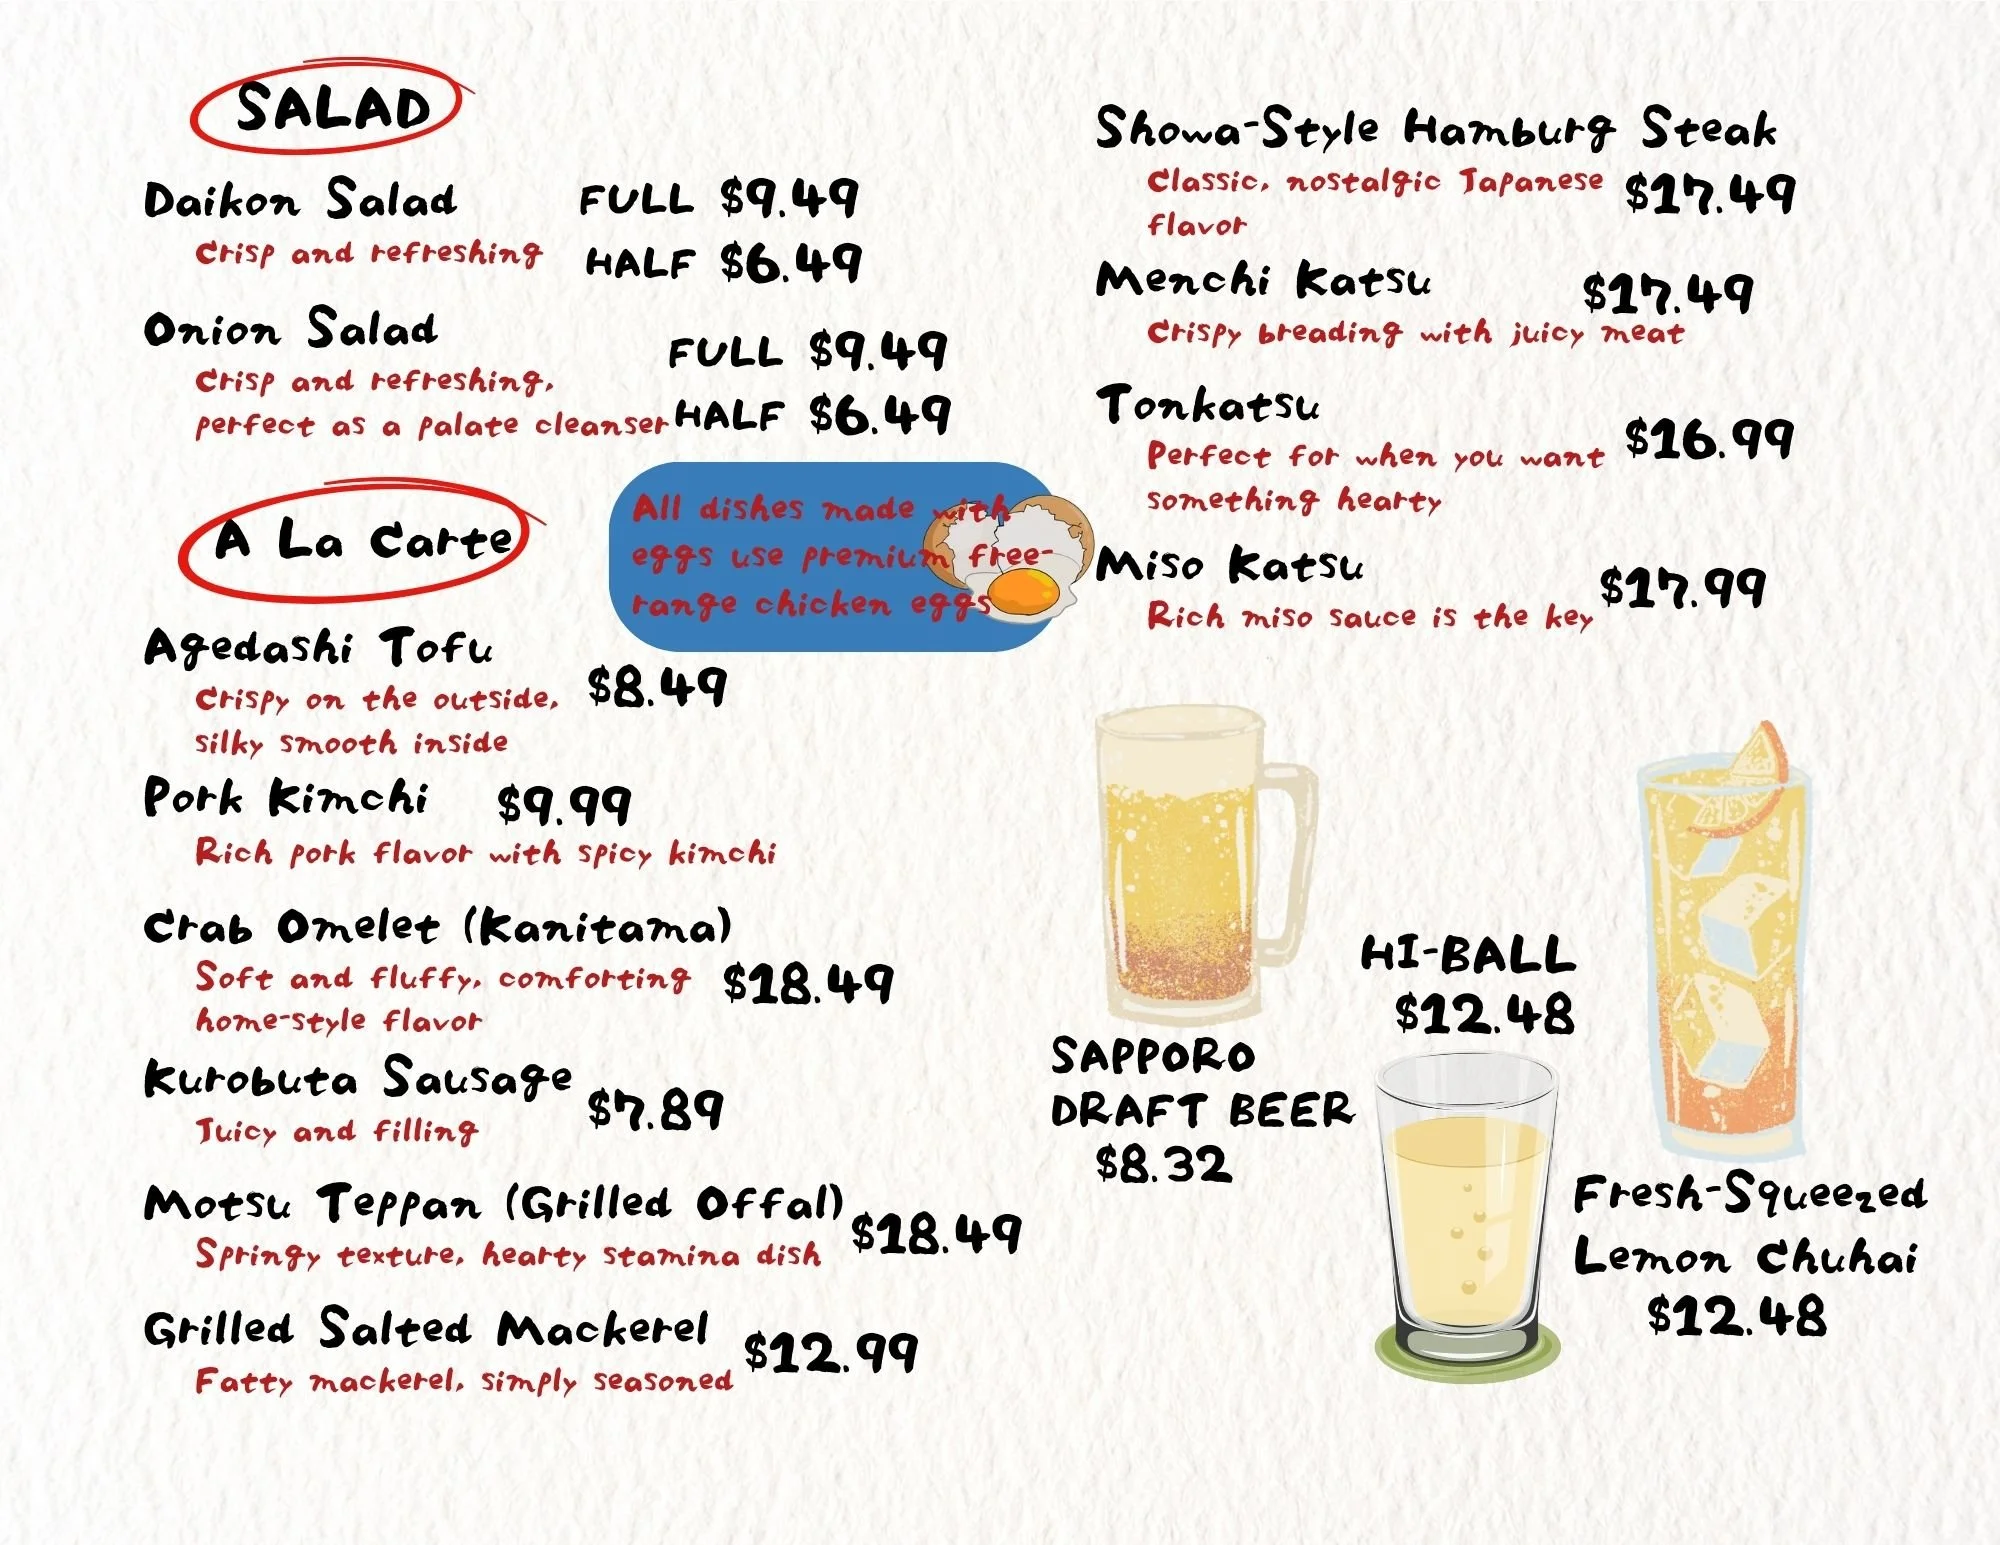 SALAD
Daikon Salad
FULL $9.49
Crisp and refreshing
HALF $6.49
Onion Salad
FULL $9.49
Crisp and refreshing,
perfect as a palate cleanser
HALF $6.49
A La Carte
All dishes made with
eggs use premium free-
range chicken eggs
Agedashi Tofu
$8.49
Crispy on the outside,
silky smooth inside
Pork Kimchi $9.99
Rich pork flavor with spicy kimchi
Crab Omelet (Kanitama)
Soft and fluffy, comforting
$18.49
home-style flavor
Kurobuta Sausage
$7.89
Juicy and filling
Motsu Teppan (Grilled Offal)
$18.49
Springy texture, hearty stamina dish
Grilled Salted Mackerel
$12.99
Fatty mackerel, simply seasoned
Showa-Style Hamburg Steak
Classic, nostalgic Japanese
$17.49
flavor
Menchi Katsu
$17.49
Crispy breading with juicy meat
Tonkatsu
$16.99
Perfect for when you want
something hearty
Miso Katsu
$17.99
Rich miso sauce is the key
HI-BALL
$12.48
SAPPORO
DRAFT BEER
$8.32
Fresh-Squeezed
Lemon Chuhai
$12.48